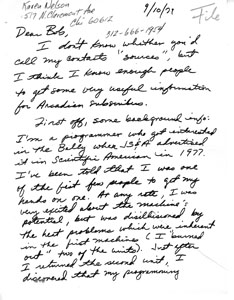 Karen Nelson
519 N. Claremont Ave
Chi 60612
9/10/78
File
Dear Bob,
312-666-1954
I don't know whether you'd
call my contacts "sources", but
I think I know enough people
to get some very useful information
for Arcadian subscribers.
First off, some background info:
I'm a programmer who got interested
in The Bally when JS&A advertised
it in Scientific American in 1977.
I've been told that I was one
of the first few people to get my
hands on one. At any rate, I was
very excited about the machine's
potential, but was disillusioned by
the heat problems which were inherent
in the first machines (I burned
out two of the units). Just after
I returned the second unit, I
discovered that my programming